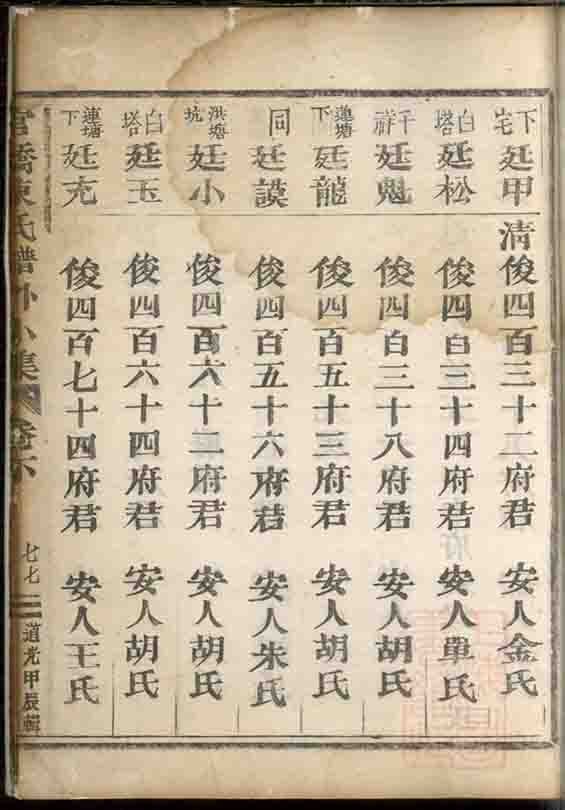 下宅廷甲 清俊四百三十二府君 安人金氏
白塔廷松 俊四百三十四府君 安人單氏
千祥廷鬼 俊四百三十八府君 安人胡氏
蓮塘下廷龍 俊四百五十三府君 安人胡氏
同廷謨 俊四百五十六府君 安人朱氏
洪塘坑廷小 俊四百六十二府君 安人胡氏
白塔廷玉 俊四百六十四府君 安人胡氏
蓮塘下廷充 俊四百七十四府君 安人王氏
橋東氏譜外小集 卷六 七七 道光甲辰輯